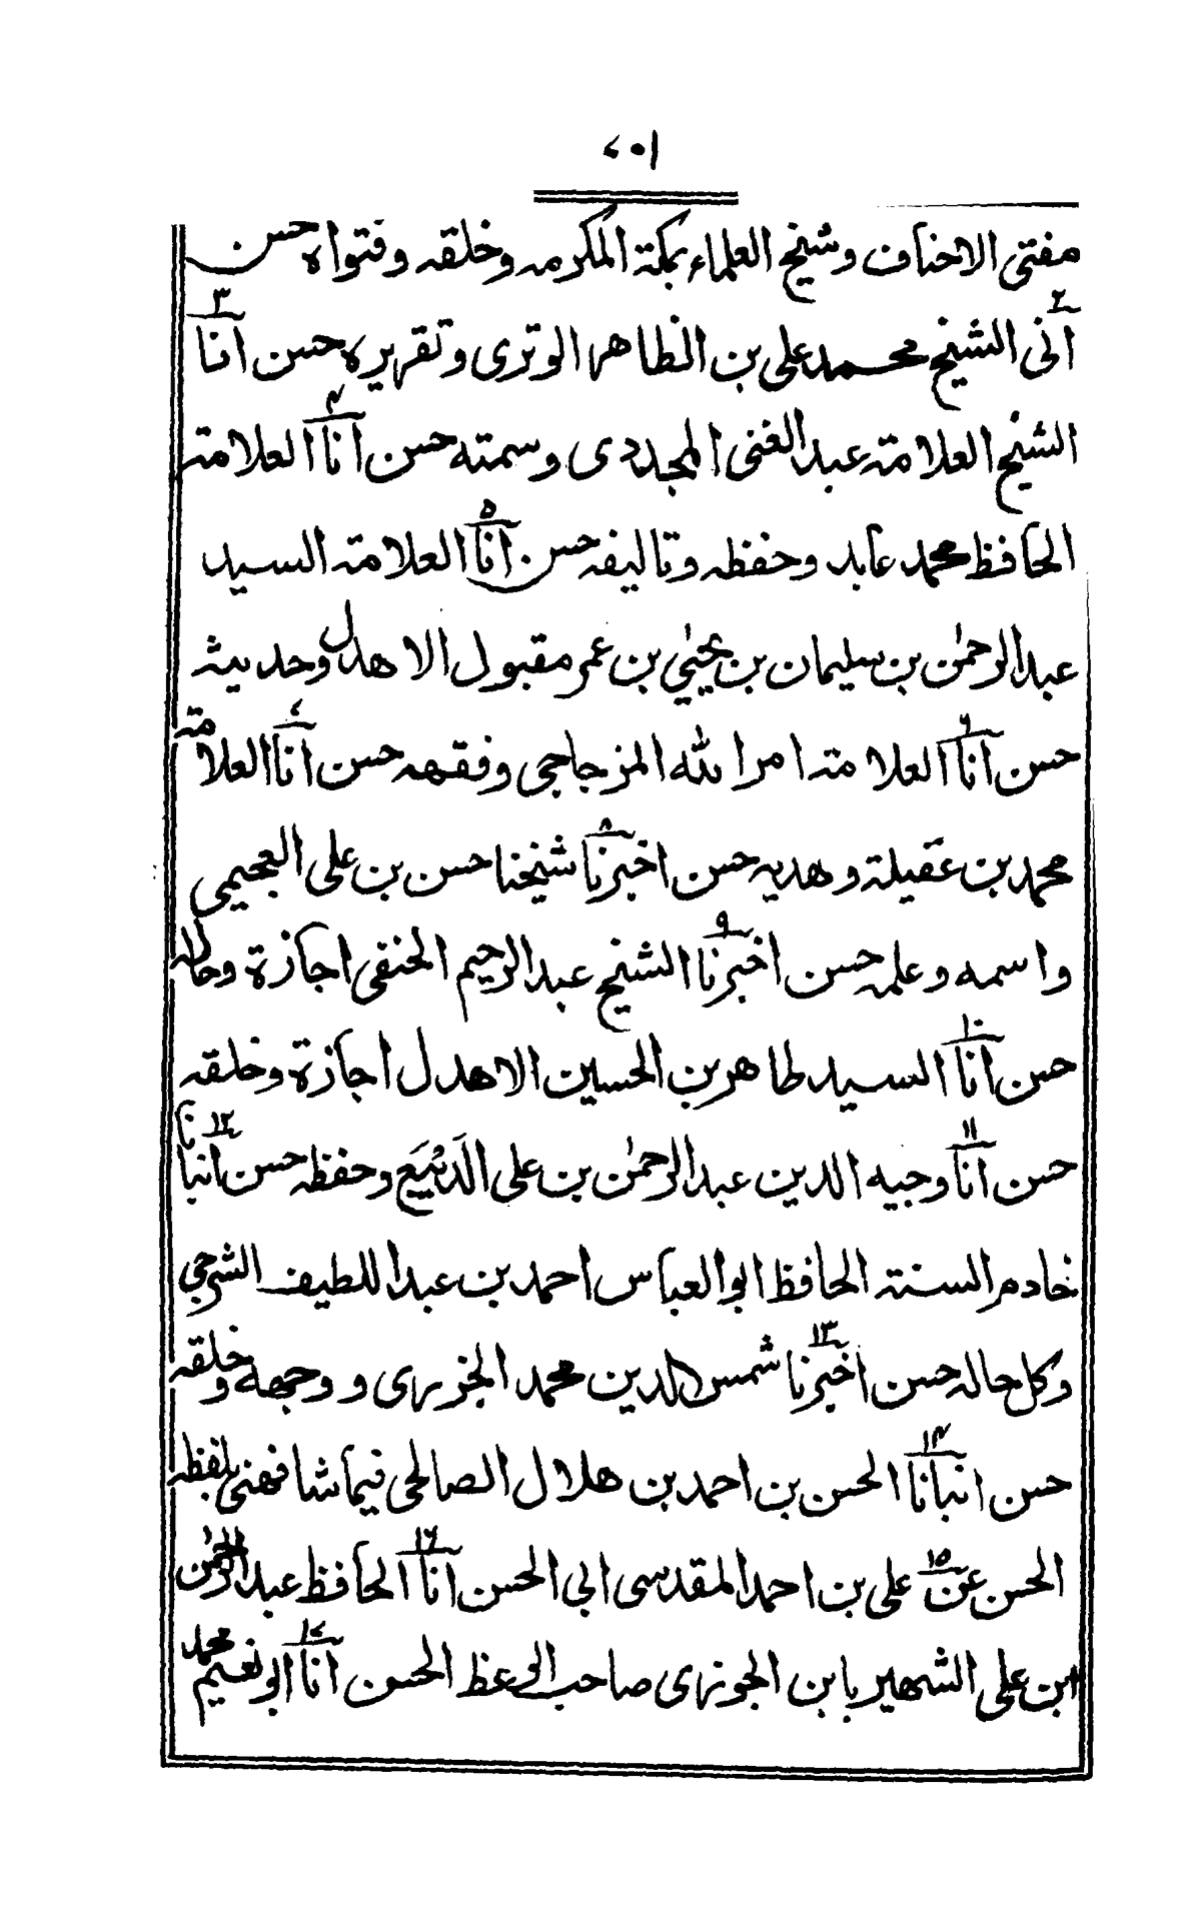 ١٠٧
مفتى الاحناف وشيخ العلماء بمكة المكرمه وخلقه وفتواه حسن
٢ ٣
انى الشيخ محمد على بن الظاهر الوترى وتقريره حسن انا
٤
الشيخ العلامة عبد الغنى المجددى وسمته حسن انا العلامة
٥
الحافظ محمد عابد وحفظه وتاليفه حسن انا العلامة السيد
عبد الرحمٰن بن سليمان بن يحيٰي بن عمر مقبول الاهدل وحديثه
٦ ٧
حسن انا العلامة امر الله المزجاجى وفقهه حسن انا العلامة
٨
محمد بن عقيلة وهديه حسن اخبرنا شيخنا حسن بن على العجيمى
٩
واسمه وعلمه حسن اخبرنا الشيخ عبد الرحيم الحنفى اجازة وحاله
١٠
حسن انا السيد طاهر بن الحسين الاهدل اجازة وخلقه
١١ ١٢
حسن انا وجيه الدين عبد الرحمٰن بن على الدَيْبَع وحفظه حسن انبانا
خادم السنة الحافظ ابو العباس احمد بن عبد اللطيف الشرجى
١٣
وكل حاله حسن اخبرنا شمس الدين محمد الجزرى ووجهه وخلقه
١٤
حسن انبانا الحسن بن احمد بن هلال الصالحى فيما شافهنى بلفظه
١٥ ١٦
الحسن عن على بن احمد المقدسى ابى الحسن انا الحافظ عبد الرحمٰن
١٧
ابن على الشهير بابن الجوزى صاحب الوعظ الحسن انا ابو نعيم محمد